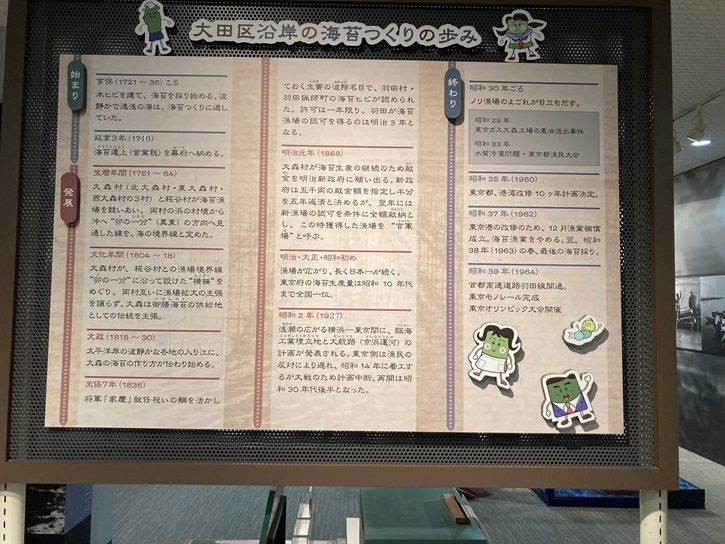 大田区沿岸の海苔つくりの歩み
始まり
享保(1721〜36)ころ
木ヒビを建て、海苔を採り始める。波
静かで遠浅の海は、海苔つくりに適し
ていた。
延享3年(1746)
海苔運上(営業税)を幕府へ納める。
発展
宝暦年間(1751〜64)
大森村(北大森村・東大森村・
西大森村の3村)と糀谷村が海苔漁
場を競いあい、両村の浜の村境から
沖へ“卯の一分”(真東)の方向へ見
通した線を、海の境界線と定めた。
文化年間(1804〜18)
大森村が、糀谷村との漁場境界線
“卯の一分”に沿って設けた“横楯”を
めぐり、両村互いに漁場拡大の主張
を譲らず。大森は御膳海苔の供給地
としての伝統を主張。
文政(1818〜30)
太平洋岸の波静かな各地の入り江に、
大森の海苔の作り方が伝わり始める。
天保7年(1836)
将軍「家慶」就任祝いの鯛を活かし
ておく生簀の波除名目で、羽田村・
羽田猟師町の海苔ヒビが認められ
た。許可は一年限り。羽田が海苔
漁場の認可を得るのは明治3年と
なる。
明治元年(1868)
大森村が海苔生産の継続のため献
金を明治新政府に願い出る。新政
府は五千両の献金額を指定し半分
を五年返済と決めるが、翌年には
新漁場の認可を条件に全額献納と
し、この時獲得した漁場を“官軍
場”と呼ぶ。
明治・大正・昭和初め
漁場が広がり、長く日本一が続く。
東京府の海苔生産量は昭和10年代
まで全国一位。
昭和2年(1927)
浅瀬の広がる横浜ー東京間に、臨海
工業埋立地と大航路(京浜運河)の
計画が発表される。東京側は漁民の
反対により遅れ、昭和14年に着工す
るが大戦のため計画中断。再開は昭
和30年代後半となった。
終わり
昭和30年ごろ
ノリ漁場のよごれが目立ちだす。
昭和29年
東京ガス大森工場の重油流出事件
昭和33年
水質汚濁問題・東京都漁民大会
昭和35年(1960)
東京都、港湾改修10ヶ年計画決定。
昭和37年(1962)
東京港の改修のため、12月漁業補償
成立。海苔漁業をやめる。翌、昭和
38年(1963)の春、最後の海苔採り。
昭和39年(1964)
首都高速道路羽田線開通。
東京モノレール完成
東京オリンピック大会開催